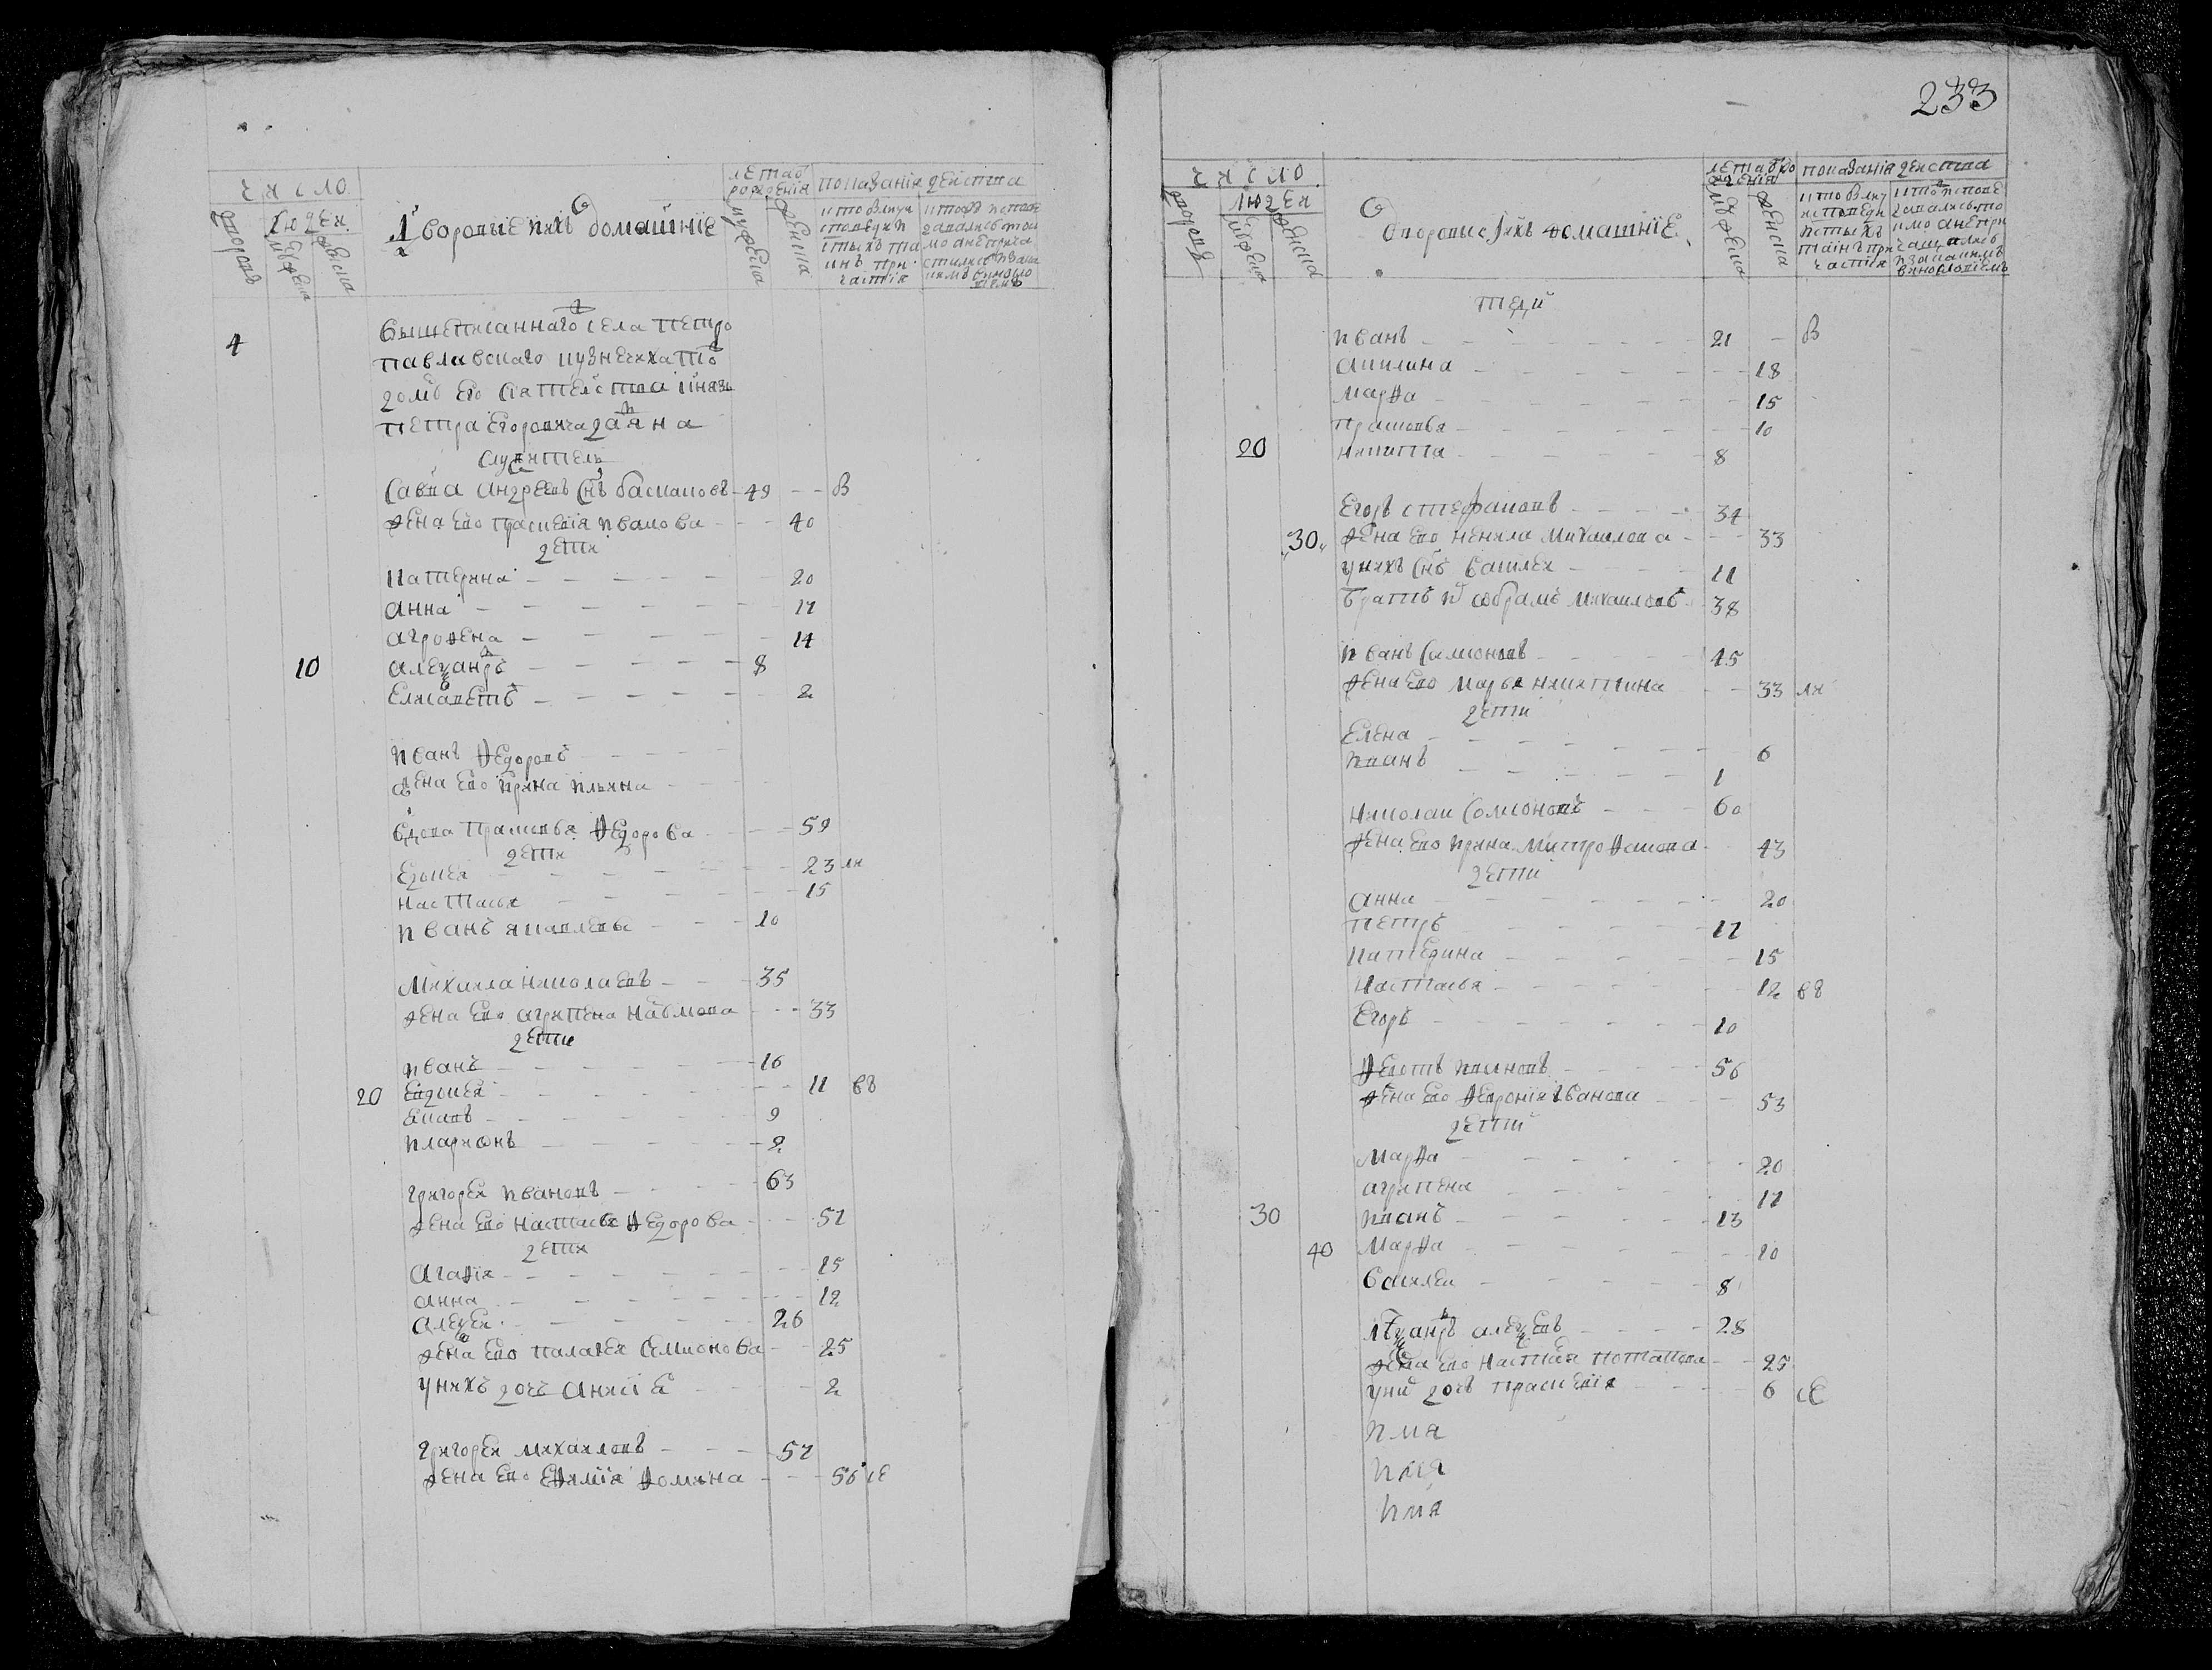 число
дворовъ
людеи
мужеска
женска
Дворовые и ихъ домашние
лета от рождения
мужеска
женска
показания действа
4
Вышеписаннаго села Петро
павлавскаго кузнечиха тоъ
домъ его сиятельства князя
Петра Егоровича
служители
Савва Андреевъ снъ Баскаковъ - 49 - - В
жена ево Прасковия Иванова - - - 40
дети
Катерина - - - - - - 20
Анна - - - - - - 17
Агрофена - - - - - 14
10 Алеѯандръ - - - - - 8
Елисаветъ - - - - - 2
Иванъ Федоровъ - - - -
жена ево Ирина Ильина - - -
Вдова Прасковья Федорова - - - 59
дети
Евдокея - - - - - - 23 ля
Настасья - - - - - - 15
Иванъ Яковлевъ - - - 10
Михаила Николаевъ - - - 35
жена ево Агрипена Наумова - - - 33
дети
Иванъ - - - - - - 16
20 Евдокея - - - - - - 11 въ
Яковъ - - - - - - 9
Иларионъ - - - - - - 2
Григореи Ивановъ - - - - 63
жена ево Настасья Федорова - - - 57
дети
Агафия - - - - - - 15
Анна - - - - - - 12
Алеѯеи - - - - - - 26
жена ево Палагея Семионова - - 25
у нихъ дочь Анисия - - - - 2
Григореи Михаиловъ - - - - 57
жена ево Ефимия Фомина - - - 56 се
233
число
дворовъ
людеи
мужеска
женска
Дворовые и ихъ домашние
лета от рождения
мужеска
женска
показания действа
дети
Иванъ - - - - - - 21 - В
Акилина - - - - - - 18
Марфа - - - - - - 15
Прасковья - - - - - - 10
20 Никита - - - - - - 8
Егоръ Стефановъ - - - - 34
30 жена ево Ненила Михаилова - - - 33
у нихъ снъ Василеи - - - - 11
братъ Михаиловъ - 38
Иванъ Симионовъ - - - - 45
жена ево Марья Никитина - - 33 ля
дети
Елена - - - - - - 6
Иванъ - - - - - - 1
Николаи Семионовъ - - - 60
жена ево Ирина Митрофанова - 43
дети
Анна - - - - - - 20
Петръ - - - - - - 17
Катерина - - - - - - 15
Настасья - - - - - - 12 въ
Егоръ - - - - - - 10
Федотъ Ивановъ - - - - 56
жена ево Феврония Иванова - - - 53
дети
Марфа - - - - - - 20
Агрипена - - - - - 17
30 Иванъ - - - - - - 13
40 Марфа - - - - - - 10
Василеи - - - - - 8
Алеѯандръ Алеѯеевъ - - - - 28
жена ево Настасея Потапова - - 25
у них дочь Прасковия - - - 6 се
Имя
Имя
Имя